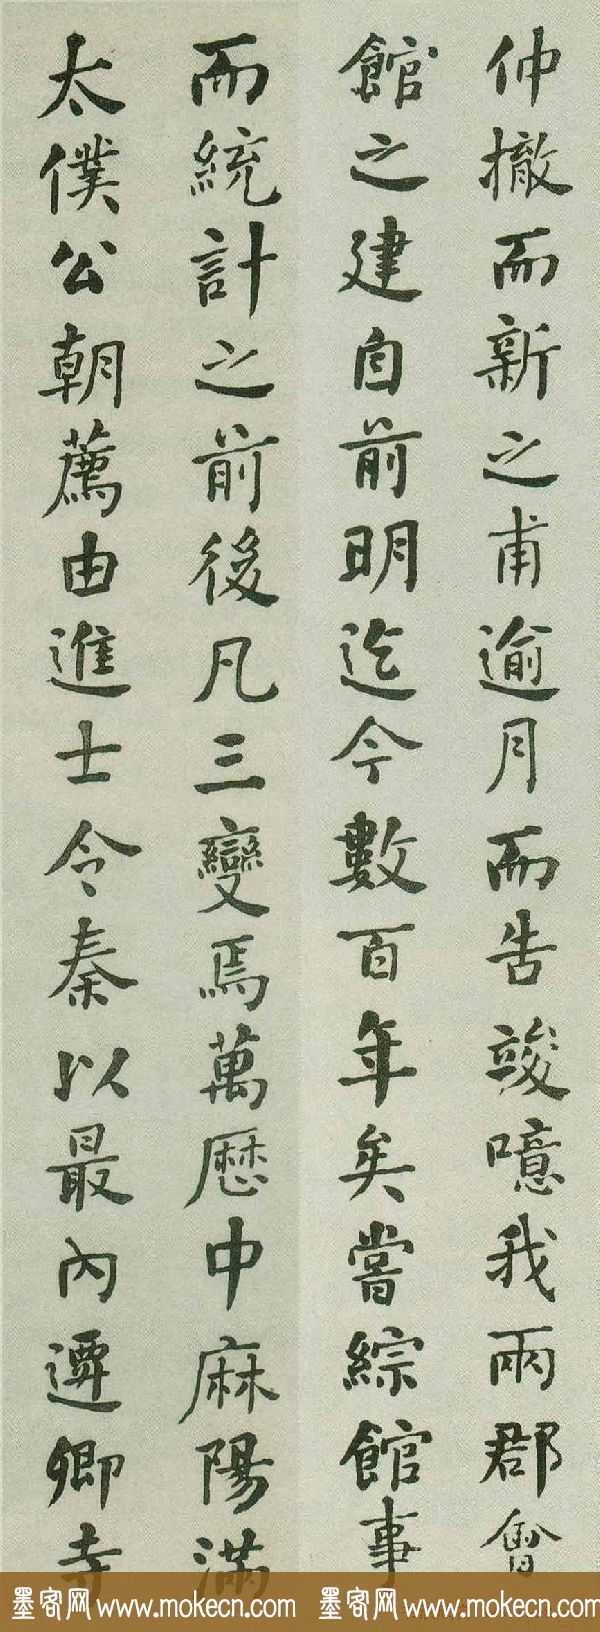 仲撤而新之甫逾月而告竣噫我兩郡會
館之建自前明迄今數百年矣嘗綜館事
而統計之前後凡三變焉萬厯中麻陽滿
太僕公朝薦由進士令秦以最內遷卿寺
墨客网 www.mokecn.com 墨客网 www.mokecn.com